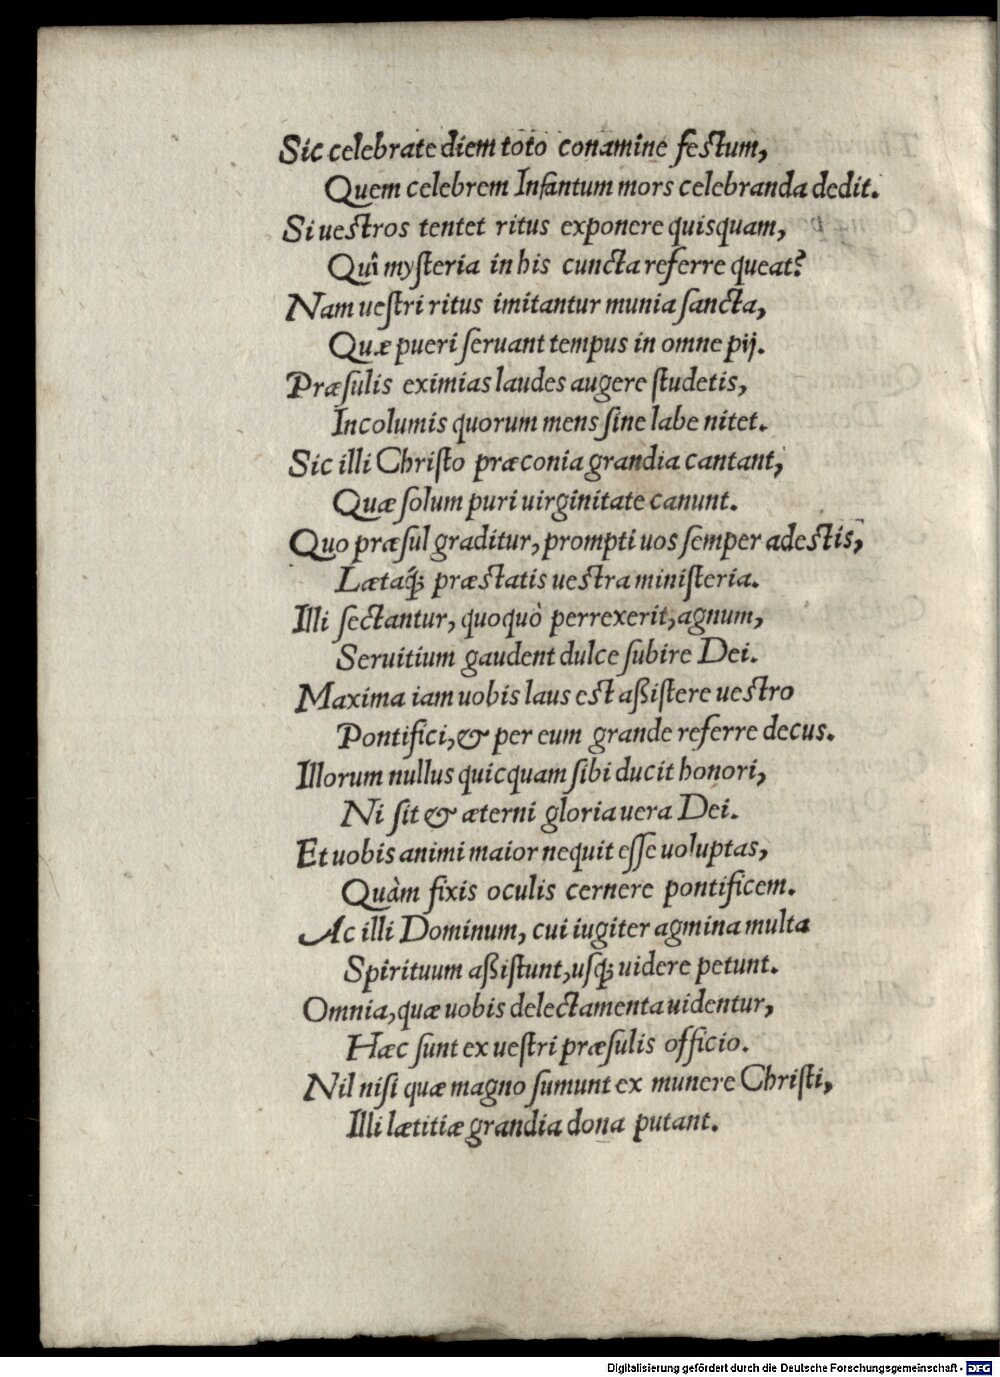 Sic celebrate diem toto conamine festum,
Quem celebrem Infantum mors celebranda dedit.
Si uestros tentet ritus exponere quisquam,
Quî mysteria in his cuncta referre queat?
Nam uestri ritus imitantur munia sancta,
Quæ pueri seruant tempus in omne pij.
Præsulis eximias laudes augere studetis,
Incolumis quorum mens sine labe nitet.
Sic illi Christo præconia grandia cantant,
Quæ solum puri uirginitate canunt.
Quo præsul graditur, prompti uos semper adestis,
Lætaq́; præstatis uestra ministeria.
Illi sectantur, quoquò perrexerit, agnum,
Seruitium gaudent dulce subire Dei.
Maxima iam uobis laus est aßistere uestro
Pontifici, & per eum grande referre decus.
Illorum nullus quicquam sibi ducit honori,
Ni sit & æterni gloria uera Dei.
Et uobis animi maior nequit esse uoluptas,
Quàm fixis oculis cernere pontificem.
Ac illi Dominum, cui iugiter agmina multa
Spirituum aßistunt, usq; uidere petunt.
Omnia, quæ uobis delectamenta uidentur,
Hæc sunt ex uestri præsulis officio.
Nil nisi quæ magno sumunt ex munere Christi,
Illi lætitiæ grandia dona putant.
Digitalisierung gefördert durch die Deutsche Forschungsgemeinschaft - DFG